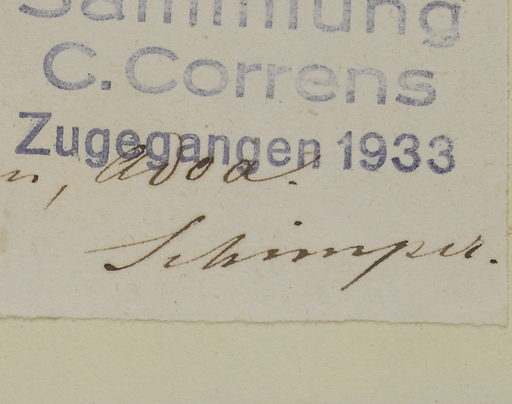 Sammlung
C. Correns
Zugegangen 1933
n, Adoa.
Schimper.